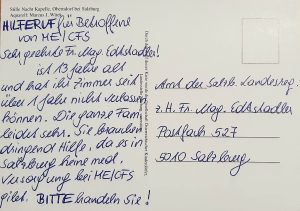 Stille Nacht Kapelle, Oberndorf bei Salzburg
Aquarell: Marcus J.
HILFERUF für Betroffene
von ME/CFS
Sehr geehrte Fr. Mag. Edtstadler!
ist 13 Jahre alt
und hat ihr Zimmer seit
über 1 Jahr nicht verlassen
können. Die ganze Fam.
leidet sehr. Sie brauchen
dringend Hilfe, da es in
Salzburg keine med.
Versorgung bei ME/CFS
gibt. BITTE handeln Sie!
Amt der Salzb. Landesreg.
z.H. Fr. Mag. Edtstadler
Postfach 527
5010 Salzburg